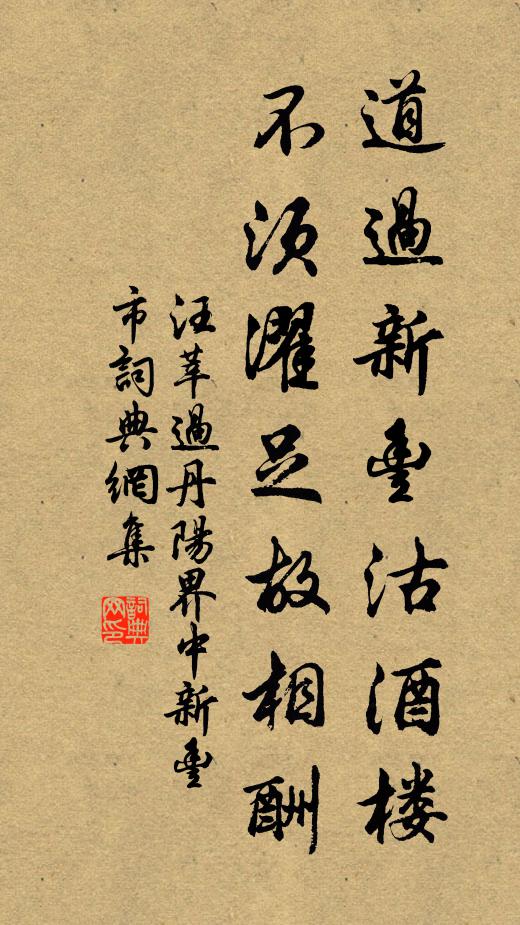 道過新豐沽酒楼
不須濯足故相酬
汪莘過丹陽界中新豐
市詞典網集
詞典
网印